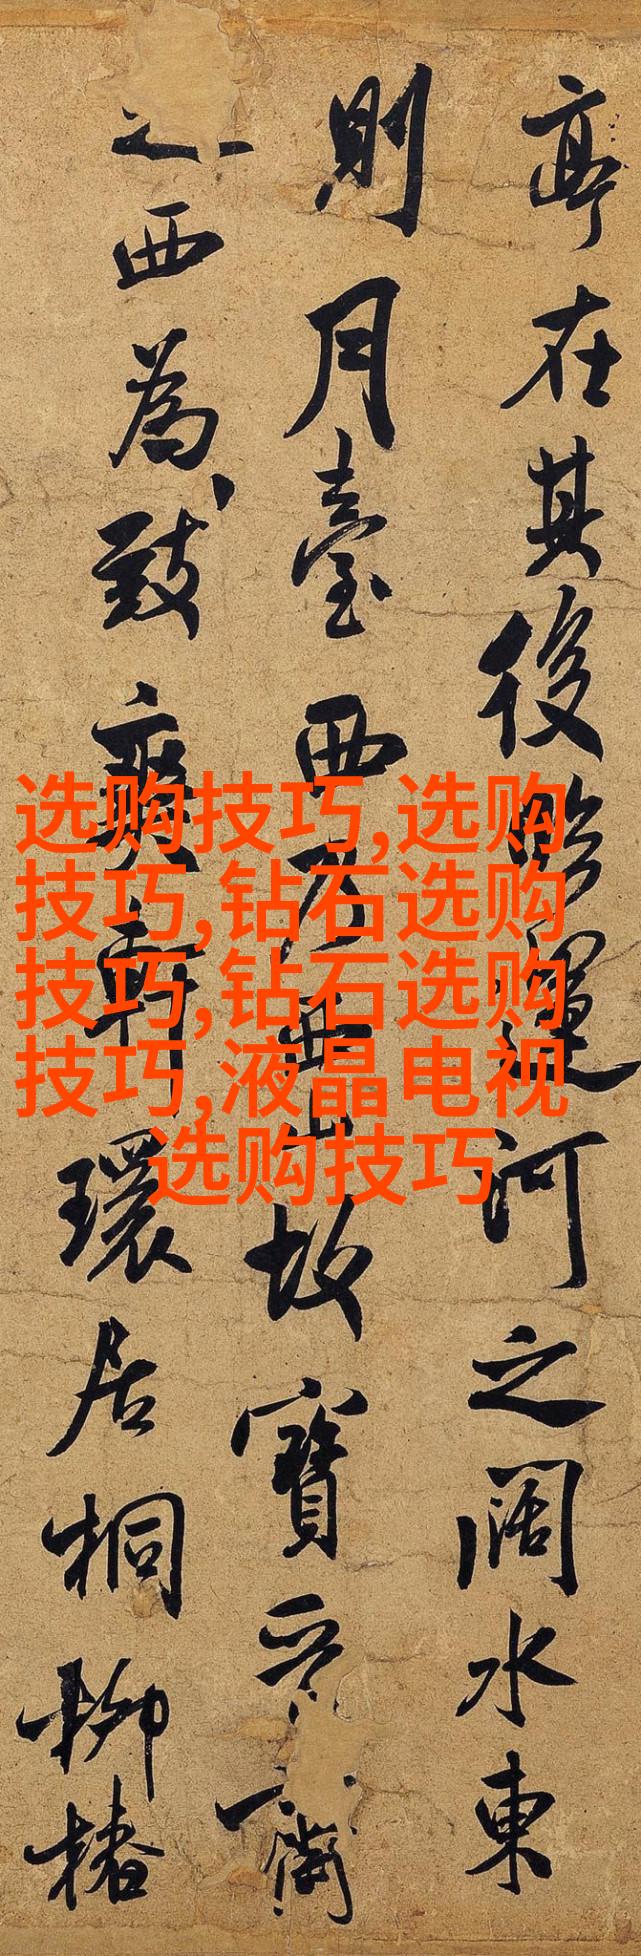 亭在其後臨運河之闊水東
則月臺西乃西山故寶晉齋
之西為致爽軒環居桐柳椿
选购技巧,选购
技巧,钻石选购
技巧,钻石选购
技巧,液晶电视
选购技巧